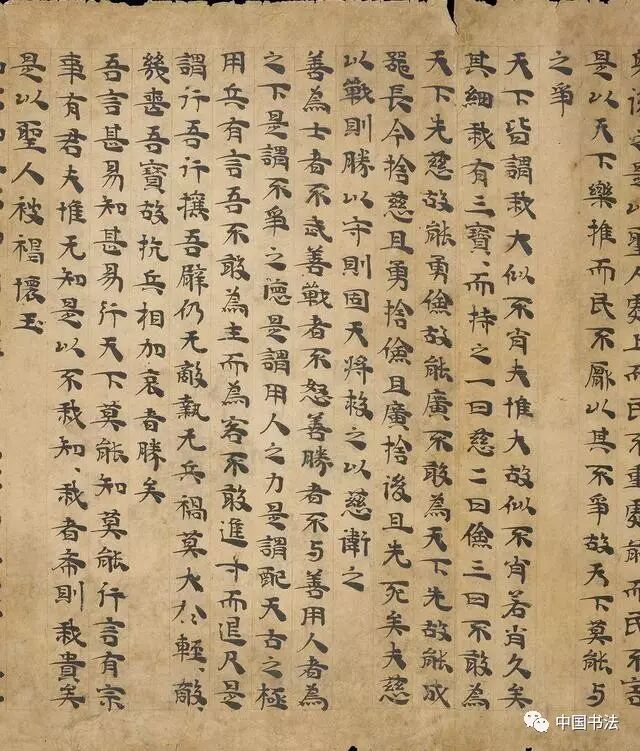 是以聖人處上而民不重處
是以天下樂推而民不厭以其不爭故天下莫能与
之爭
天下皆謂我大似不肖夫惟大故似不肖若肖久矣
其細我有三寶、而持之一曰慈二曰儉三曰不敢為
天下先慈故能勇儉故能廣不敢為天下先故能成
器長今捨慈且勇捨儉且廣捨後且先死矣夫慈
以戰則勝以守則固天將救之以慈衛之
善為士者不武善戰者不怒善勝者不与善用人者為
之下是謂不爭之德是謂用人之力是謂配天古之極
用兵有言吾不敢為主而為客不敢進寸而退尺是
謂行吾行攘吾臂仍无敵執无兵禍莫大於輕、敵、
幾喪吾寶故抗兵相加哀者勝矣
吾言甚易知甚易行天下莫能知莫能行言有宗
事有君夫惟无知是以不我知、我者希則我貴矣
是以聖人被褐懷玉
中国书法